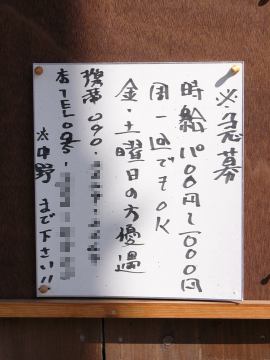 ※急募
時給1000円～1000円
週一回でもOK
金・土曜日の方優遇
携帯090・
店TEL03・
※中野まで下さい!!